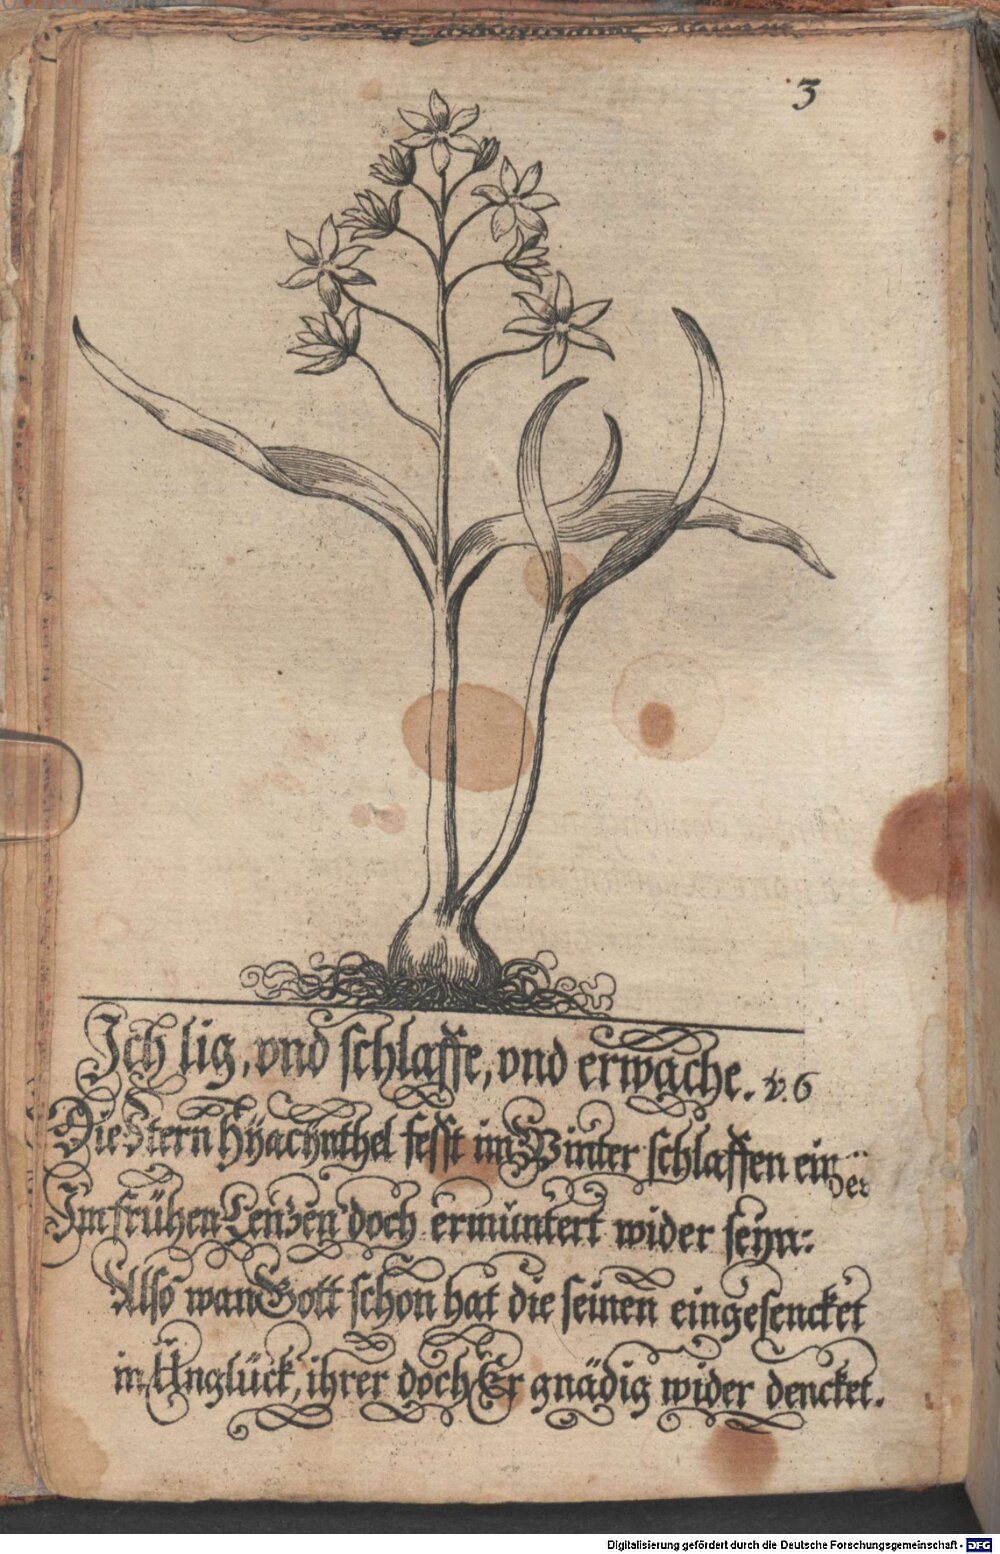 3
Ich lig, vnd schlaffe, vnd erwache. v. 6
Die Stern Hÿacÿnthel fesst im Winter schlaffen ein
Im frühen Lenzen doch ermüntert wider seÿn:
Also wan Gott schon hat die seinen eingesencket
in Unglück, ihrer doch Er gnädig wider dencket.
Digitalisierung gefördert durch die Deutsche Forschungsgemeinschaft - DFG